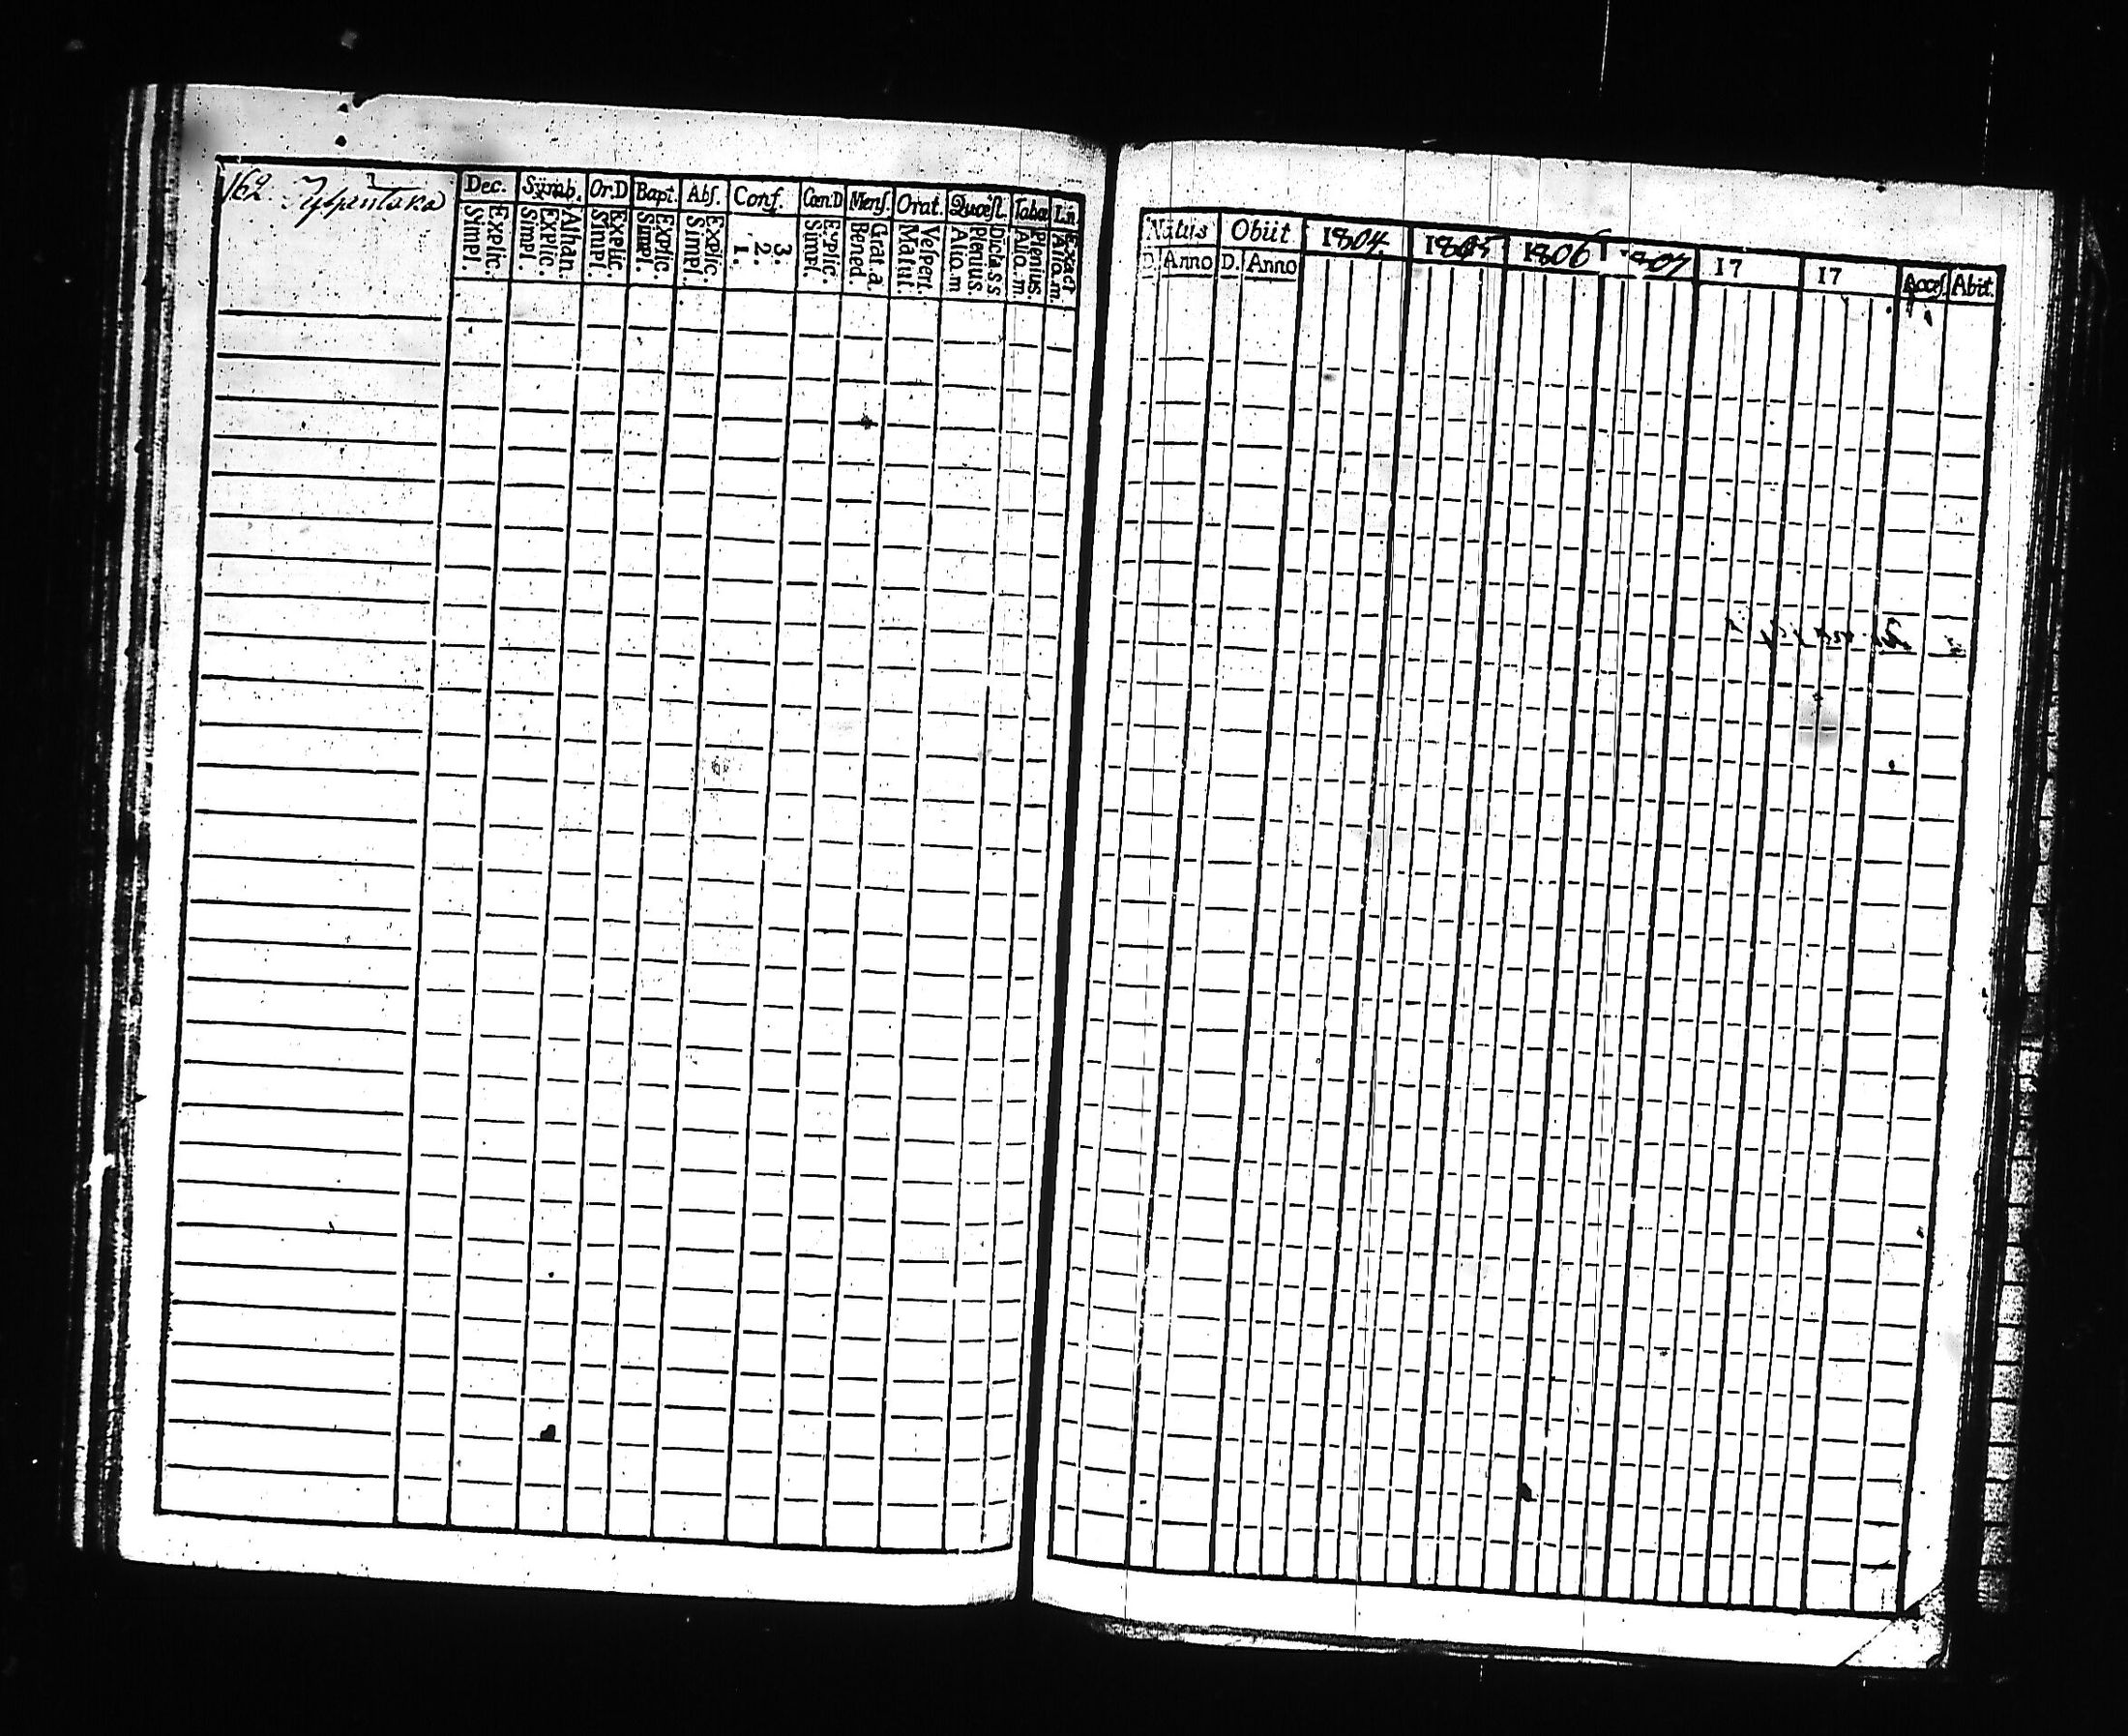 162.
Dec. Symb. Or.D Bapt. Abs. Conf. Cœn.D Mens. Orat. Quæst. Tabæ Ln.
Simpl. Explic. Simpl. Explic. Athan. Simpl. Explic. Simpl. Explic. Simpl. Explic. 1. 2. 3. Simpl. Explic. Bened. Grat. a Matut. Vespert. Alio. m Plenius. Dicta. s.s Alio. m Plenius. Alio. m. Exact
Natus Obiit 1804. 1805 1806 1807 17 17 Acces. Abit.
D. Anno D. Anno